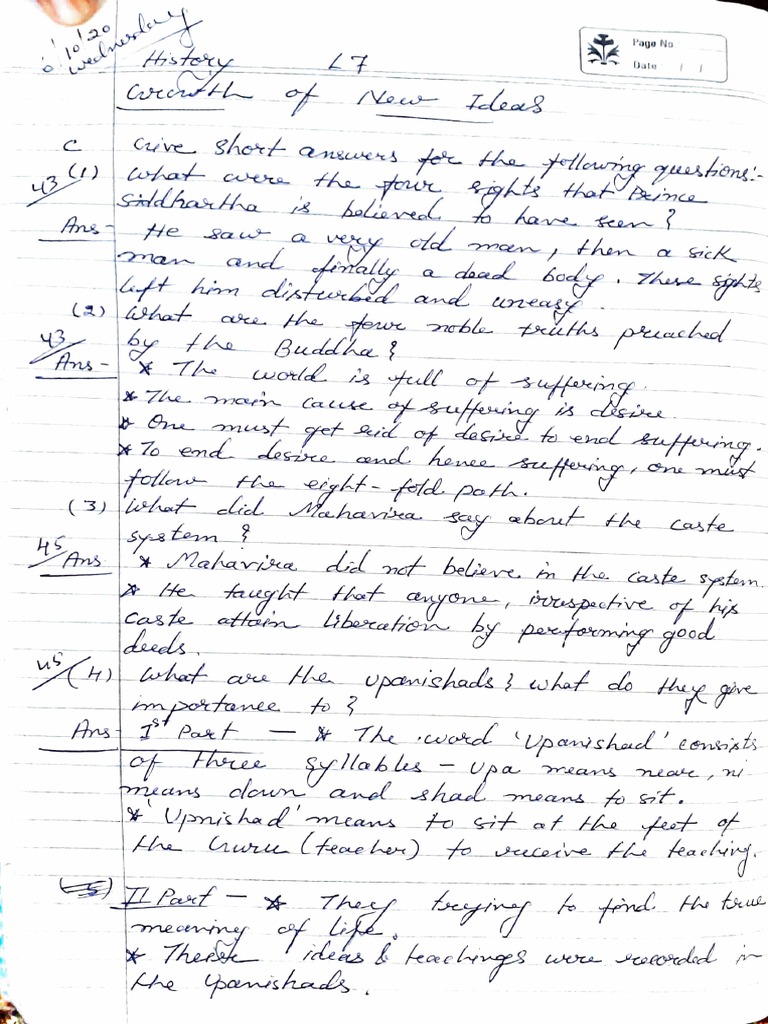 6'10'20
Wednesday
Page No
Date / /
History L7
Growth of New Ideas
C Give short answers for the following questions:-
43 (1) What were the four sights that Prince
Siddhartha is believed to have seen?
Ans- He saw a very old man, then a sick
man and finally a dead body. These sights
left him disturbed and uneasy.
(2) What are the four noble truths preached
43 by the Buddha?
Ans- * The world is full of suffering.
* The main cause of suffering is desire.
* One must get rid of desire to end suffering.
* To end desire and hence suffering, one must
follow the eight-fold path.
(3) What did Mahavira say about the caste
system?
45 Ans * Mahavira did not believe in the caste system.
* He taught that anyone, irrespective of his
caste attain liberation by performing good
deeds.
45 (4) What are the Upanishads? What do they give
importance to?
Ans- Ist Part - * The word 'Upanishad' consists
of three syllables - Upa means near, ni
means down and shad means to sit.
* 'Upnishad' means to sit at the feet of
the Guru (teacher) to receive the teaching.
II Part - * They trying to find the true
meaning of life.
* ideas & teachings were recorded in
the Upanishads.